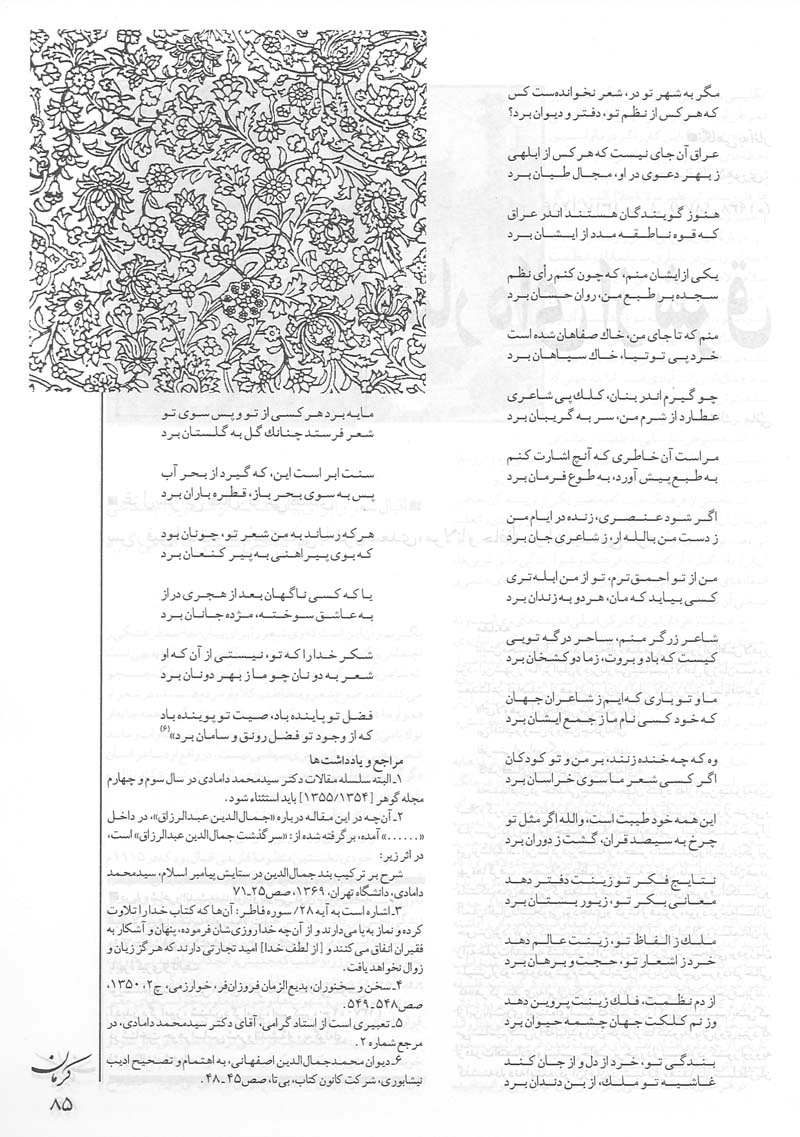 مگر به شهر تو در، شعر نخوانده‌ست کس
که هر کس از نظم تو، دفتر و دیوان برد؟
عراق آن جای نیست که هر کس از ابلهی
ز بهر دعوی در او، مجال طیان برد
هنوز گویندگان هستند اندر عراق
که قوه ناطقه مدد از ایشان برد
یکی از ایشان منم، که چون کنم رأی نظم
سجده بر طبع من، روان حسان برد
منم که تا جای من، خاك صفاهان شده است
خرد پی توتیا، خاك سپاهان برد
چو گیرم اندر بنان، کلك پی شاعری
عطارد از شرم من، سر به گریبان برد
مراست آن خاطری که آنچ اشارت کنم
به طبع پیش آورد، به طوع فرمان برد
اگر شود عنصری، زنده در ایام من
ز دست من بالله ار، ز شاعری جان برد
من از تو احمق‌ترم، تو از من ابله‌تری
کسی بیاید که مان، هر دو به زندان برد
شاعر زرگر منم، ساحر درگه تویی
کیست که باد و بروت، ز ما دو کشخان برد
ما و تو باری که‌ایم ز شاعران جهان
که خود کسی نام ما ز جمع ایشان برد
وه که چه خنده زنند، بر من و تو کودکان
اگر کسی شعر ما سوی خراسان برد
این همه خود طیبت است، والله اگر مثل تو
چرخ به سیصد قران، گشت ز دوران برد
نتایج فکر تو زینت دفتر دهد
معانی بکر تو، زیور بستان برد
ملك ز الفاظ تو، زینت عالم دهد
خرد ز اشعار تو، حجت و برهان برد
از دم نظمت، فلك زینت پروین دهد
وز نم کلکت جهان چشمه حیوان برد
بندگی تو، خرد از دل و از جان کند
غاشیه تو ملك، از بن دندان برد
مایه برد هر کسی از تو و پس سوی تو
شعر فرستد چنانك گل به گلستان برد
سنت ابر است این، که گیرد از بحر آب
پس به سوی بحر باز، قطره باران برد
هر که رساند به من شعر تو، چونان بود
که بوی پیراهنی به پیر کنعان برد
یا که کسی ناگهان بعد از هجری دراز
به عاشق سوخته، مژده جانان برد
شکر خدا را که تو، نیستی از آن که او
شعر به دونان چو ما ز بهر دونان برد
فضل تو پاینده باد، صیت تو پوینده باد
که از وجود تو فضل رونق و سامان برد»(۶)
مراجع و یادداشت‌ها
۱ـ البته سلسله مقالات دکتر سیدمحمد دامادی در سال سوم و چهارم
مجله گوهر [۱۳۵۵/۱۳۵۴] باید استثناء شود.
۲ـ آن‌چه در این مقاله درباره «جمال‌الدین عبدالرزاق»، در داخل
«......» آمده، برگرفته شده از: «سرگذشت جمال‌الدین عبدالرزاق» است،
در اثر زیر:
شرح بر ترکیب بند جمال‌الدین در ستایش پیامبر اسلام، سیدمحمد
دامادی، دانشگاه تهران، ۱۳۶۹، صص۲۵ـ۷۱
۳ـ اشاره است به آیه ۲۸/ سوره فاطر: آن‌ها که کتاب خدا را تلاوت
کرده و نماز به پا می‌دارند و از آن‌چه خدا روزی‌شان فرموده، پنهان و آشکار به
فقیران انفاق می‌کنند و [از لطف خدا] امید تجارتی دارند که هرگز زیان و
زوال نخواهد یافت.
۴ـ سخن و سخنوران، بدیع‌الزمان فروزان‌فر، خوارزمی، چ۲، ۱۳۵۰،
صص۵۴۸ـ۵۴۹.
۵ـ تعبیری است از استاد گرامی، آقای دکتر سیدمحمد دامادی، در
مرجع شماره ۲.
۶ـ دیوان محمدجمال‌الدین اصفهانی، به اهتمام و تصحیح ادیب
نیشابوری، شرکت کانون کتاب، بی‌تا، صص۴۵ـ۴۸.
کرمان
۸۵